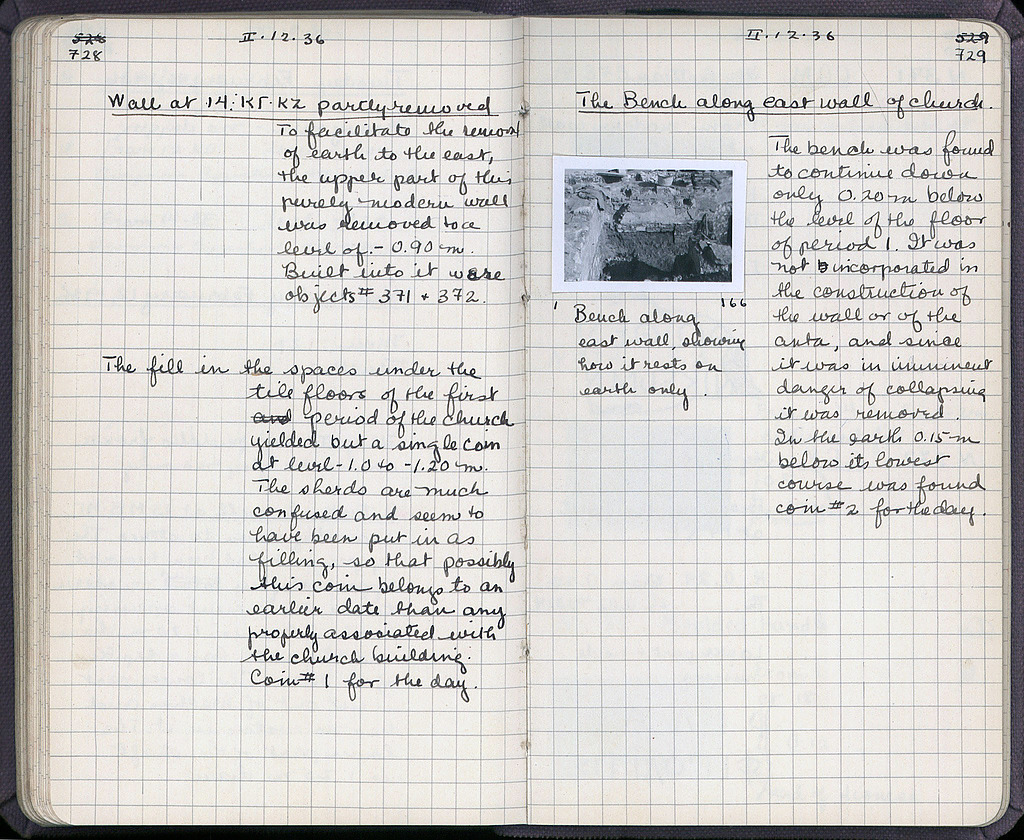 528
728
II.12.36
Wall at 14:ΚΓ-ΚΖ partly removed
To facilitate the removal
of earth to the east,
the upper part of this
purely modern wall
was removed to a
level of - 0.90 m.
Built into it were
objects # 371 + 372.
The fill in the spaces under the
tile floors of the first
and period of the church
yielded but a single coin
at level -1.0 to -1.20 m.
The sherds are much
confused and seem to
have been put in as
filling, so that possibly
this coin belongs to an
earlier date than any
properly associated with
the church building.
Coin # 1 for the day.
II.12.36
529
729
The Bench along east wall of church.
166
Bench along
east wall, showing
how it rests on
earth only.
The bench was found
to continue down
only 0.20 m below
the level of the floor
of period 1. It was
not incorporated in
the construction of
the wall or of the
anta, and since
it was in imminent
danger of collapsing
it was removed.
In the earth 0.15 m
below its lowest
course was found
coin # 2 for the day.